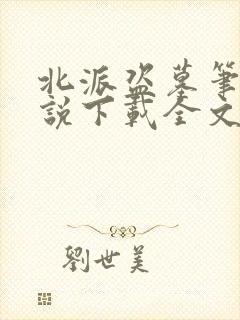 北派盜墓筆
說下載全文
劉世美